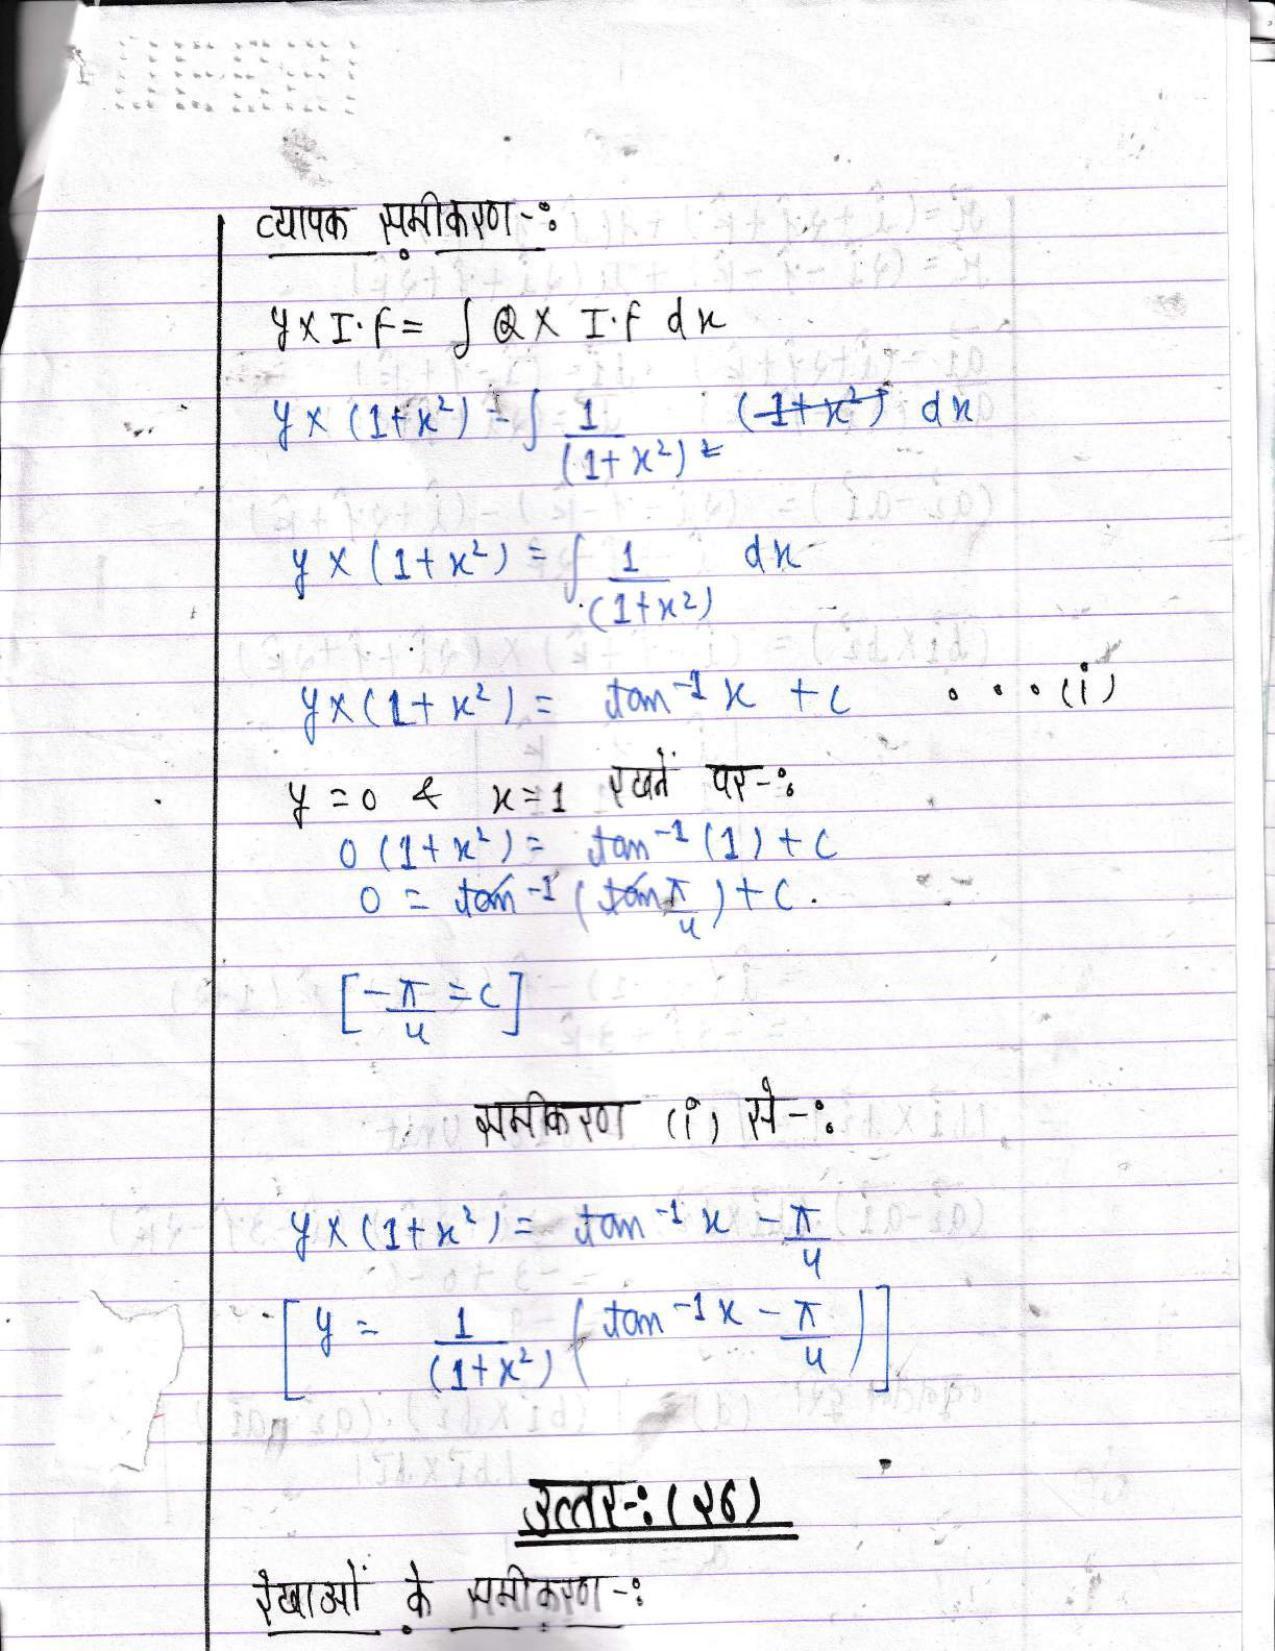 व्यापक समीकरण-:
y x I.f = ∫ Q x I.f dx
y x (1+x²) = ∫ 1/(1+x²)² (1+x²) dx
y x (1+x²) = ∫ 1/(1+x²) dx
y x (1+x²) = tan⁻¹ x + c ...(i)
y = 0 & x = 1 रखने पर-:
0 (1+x²) = tan⁻¹ (1) + c
0 = tan⁻¹ (tan π/4) + c.
[-π/4 = c]
समीकरण (i) से-:
y x (1+x²) = tan⁻¹ x - π/4
[y = 1/(1+x²) (tan⁻¹x - π/4)]
उत्तर-: (२6)
रेखाओं के समीकरण-: